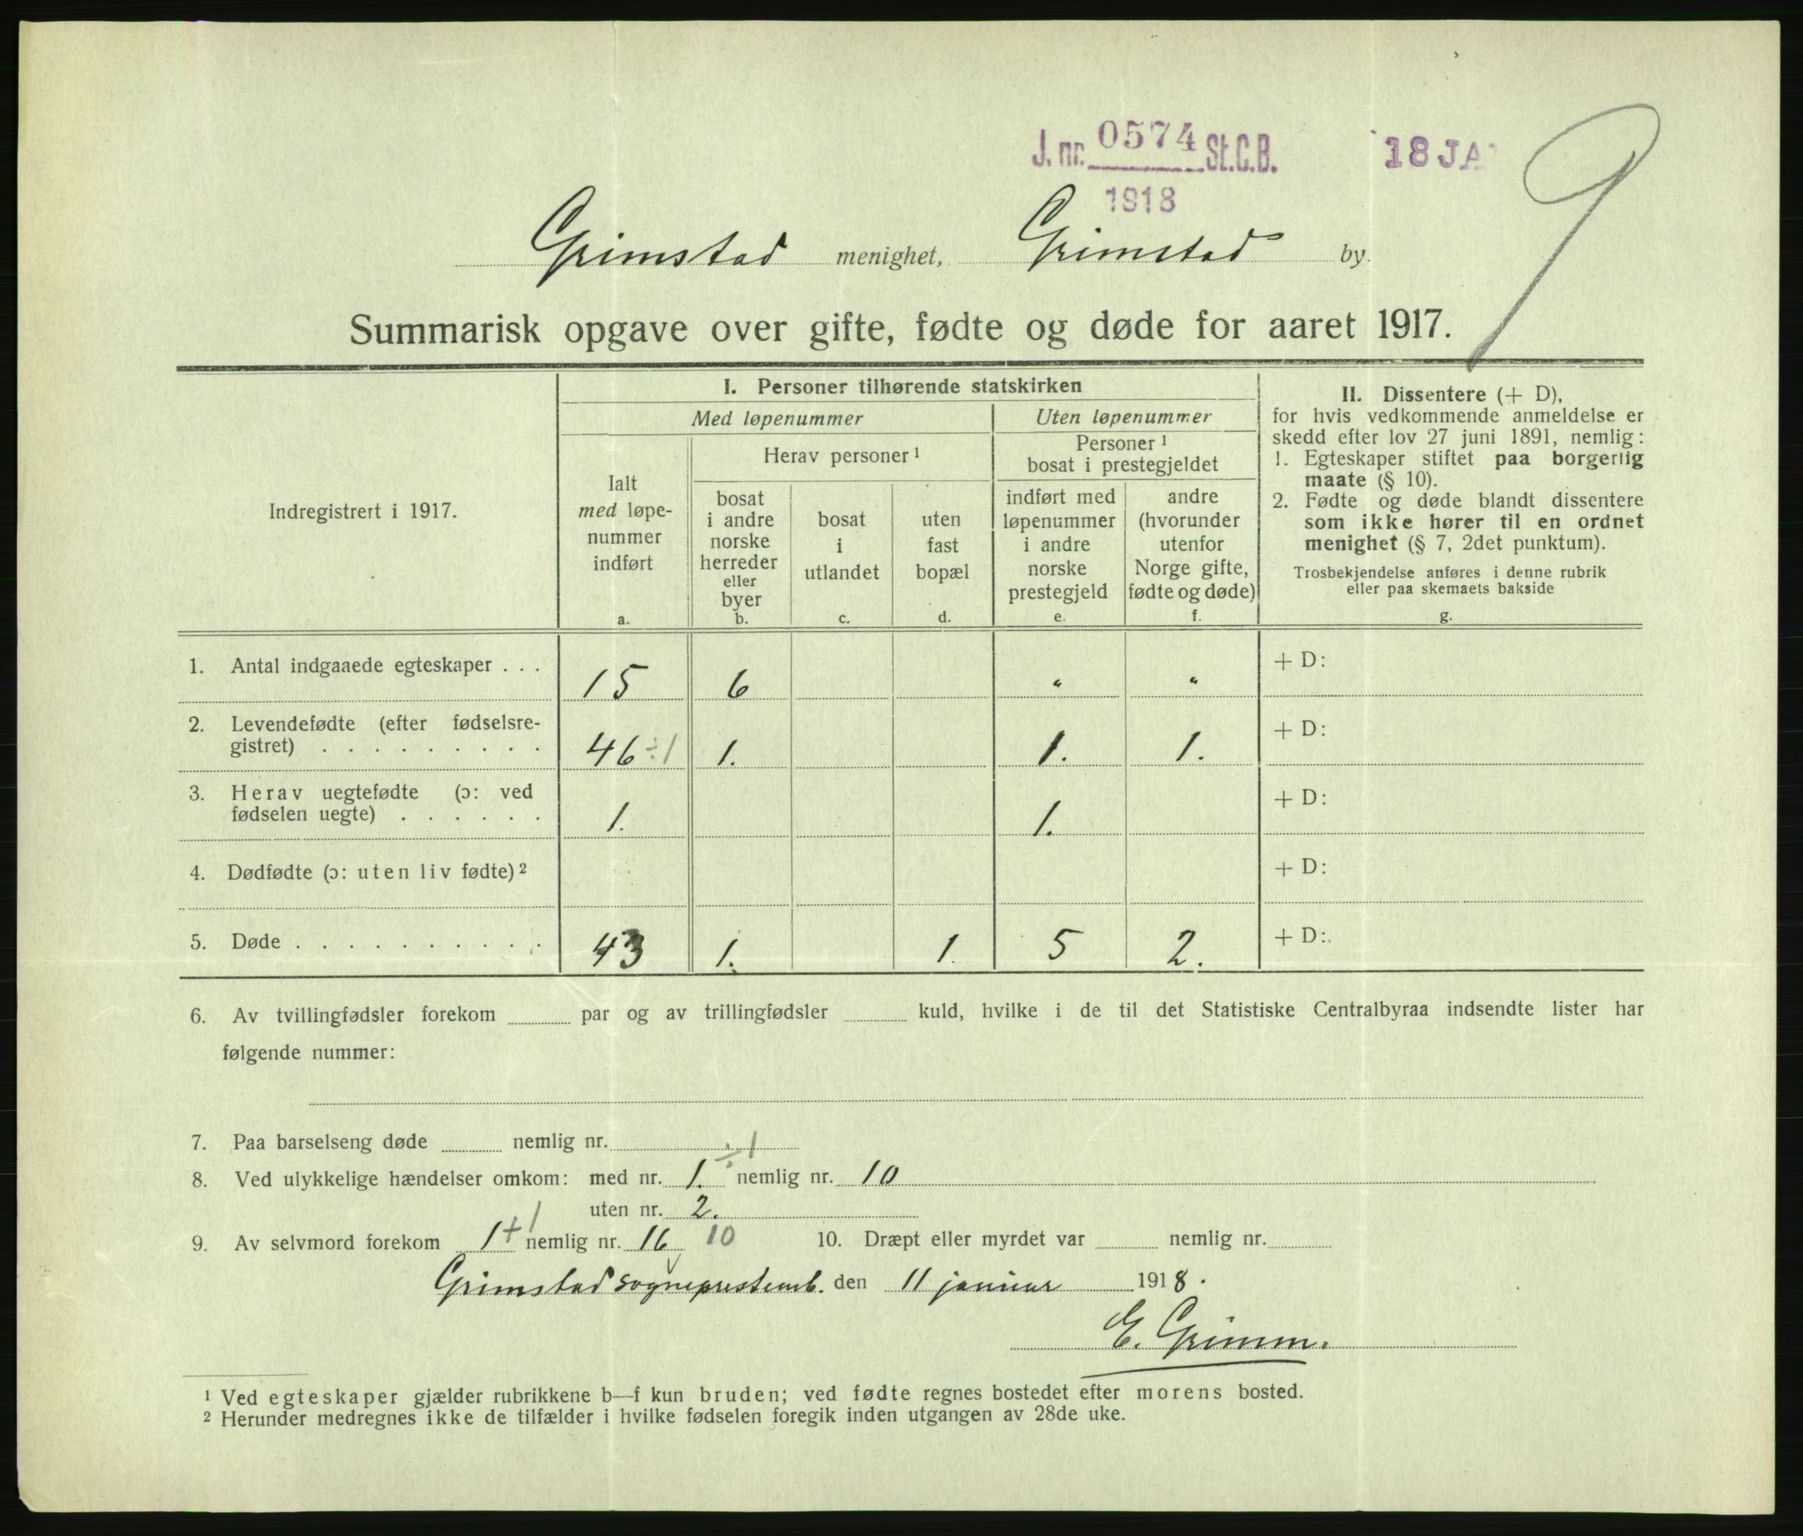 J. nr. 0574 St.C.B.
18 JA
1918
9
Grimstad menighet, Grimstad by.
Summarisk opgave over gifte, fødte og døde for aaret 1917.
Indregistrert i 1917.
I. Personer tilhørende statskirken
Med løpenummer
Uten løpenummer
Ialt
med løpe-
nummer
indført
a.
Herav personer 1
bosat
i andre
norske
herreder
eller
byer
b.
bosat
i
utlandet
c.
uten
fast
bopæl
d.
Personer 1
bosat i prestegjeldet
indført med
løpenummer
i andre
norske
prestegjeld
e.
andre
(hvorunder
utenfor
Norge gifte,
fødte og døde)
f.
II. Dissentere (+ D),
for hvis vedkommende anmeldelse er
skedd efter lov 27 juni 1891, nemlig:
1. Egteskaper stiftet paa borgerlig
maate (§ 10).
2. Fødte og døde blandt dissentere
som ikke hører til en ordnet
menighet (§ 7, 2det punktum).
Trosbekjendelse anføres i denne rubrik
eller paa skemaets bakside
g.
1. Antal indgaaede egteskaper . . . 15 6 " " + D:
2. Levendefødte (efter fødselsre-
gistret) . . . . . . . . . 46 ÷1 1. 1. 1. + D:
3. Herav uegtefødte (ɔ: ved
fødselen uegte) . . . . . . 1. 1. + D:
4. Dødfødte (ɔ: uten liv fødte) 2 + D:
5. Døde . . . . . . . . . . 43 1. 1. 5 2. + D:
6. Av tvillingfødsler forekom par og av trillingfødsler kuld, hvilke i de til det Statistiske Centralbyraa indsendte lister har
følgende nummer:
7. Paa barselseng døde nemlig nr.
8. Ved ulykkelige hændelser omkom: med nr. 1. ÷1 nemlig nr. 10
uten nr. 2.
9. Av selvmord forekom 1 +1 nemlig nr. 16 10 10. Dræpt eller myrdet var nemlig nr.
Grimstad sogneprestemb. den 11 januar 1918.
E. Grimm.
1 Ved egteskaper gjælder rubrikkene b—f kun bruden; ved fødte regnes bostedet efter morens bosted.
2 Herunder medregnes ikke de tilfælder i hvilke fødselen foregik inden utgangen av 28de uke.